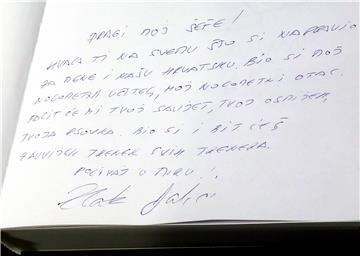 DRAGI MOJ ŠEFE!
HVALA TI NA SVEMU ŠTO SI NAPRAVIO
ZA MENE I NAŠU HRVATSKU. BIO SI MOJ
NOGOMETNI UČITELJ, MOJ NOGOMETNI OTAC.
FALIT ĆE MI TVOJ SAVJET, TVOJ OSMIJEH,
TVOJA PSOVKA. BIO SI I BIT ĆEŠ
ZAUVIJEK TRENER SVIH TRENERA.
POČIVAJ U MIRU!
Zlatko Dalić